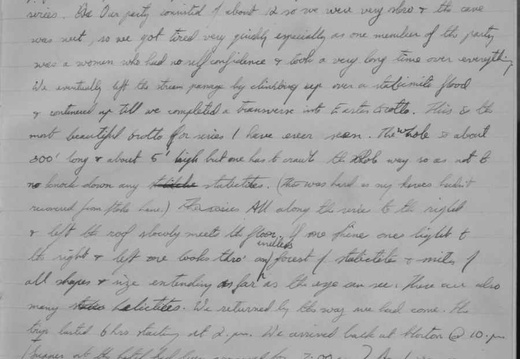 series. Our party consisted of about 12 so we were very slow & the cave
was wet, so we got tired very quickly especially as one member of the party
was a women who had no self confidence & took a very long time over everything
We eventually left the stream passage by climbing up over a stalagmite flood
& continued up till we completed a transverse into Easter Grotto. This is the
most beautiful grotto for series I have ever seen. The whole is about
300' long & about 5' high but one has to crawl the whole way so as not to
knock down any stalactites. (this was hard as my knees hadn't
recovered from) All along the series to the right
& left the roof slowly meets the floor, If one shine one light to
the right & left one looks thro' an endless forest of stalactite & mites of
all shapes & size extending as far as the eye can see. There are also
many helictites. We returned by the way we had come. The
trip lasted 6 hrs starting at 2 p.m. We arrived back at Horton @ 10. p.m